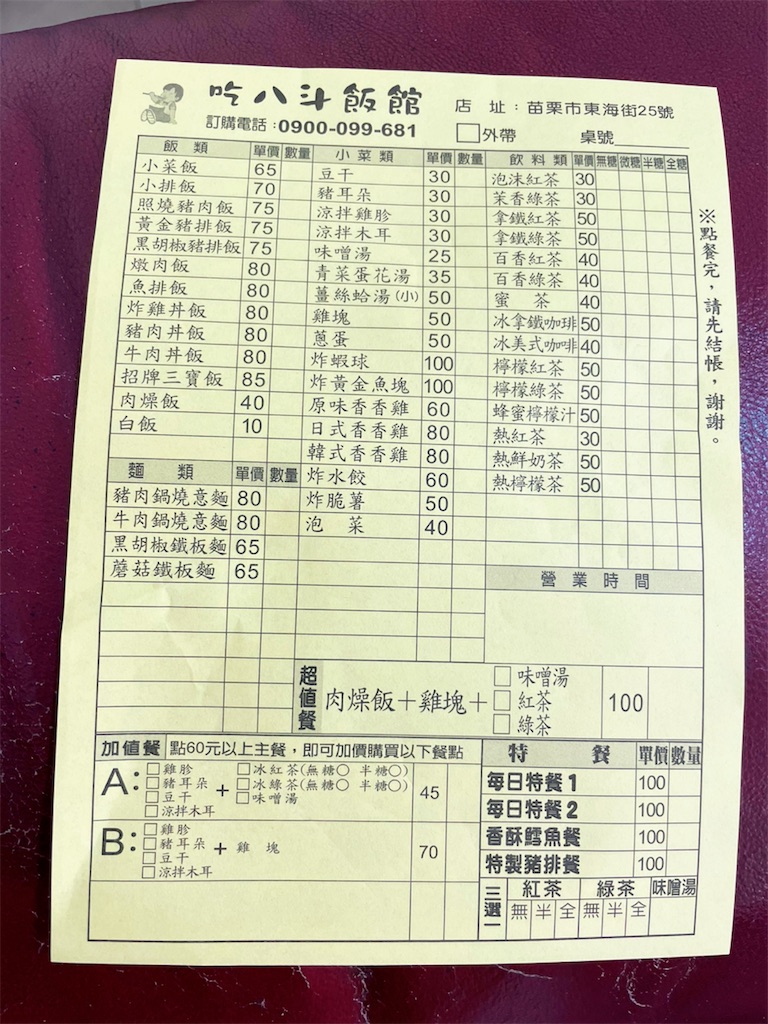 吃八斗飯館
訂購電話:0900-099-681
店 址:苗栗市東海街25號
□外帶 桌號
飯 類 單價 數量
小菜飯 65
小排飯 70
照燒豬肉飯 75
黃金豬排飯 75
黑胡椒豬排飯 75
燉肉飯 80
魚排飯 80
炸雞丼飯 80
豬肉丼飯 80
牛肉丼飯 80
招牌三寶飯 85
肉燥飯 40
白飯 10
麵 類 單價 數量
豬肉鍋燒意麵 80
牛肉鍋燒意麵 80
黑胡椒鐵板麵 65
蘑菇鐵板麵 65
小菜類 單價 數量
豆干 30
豬耳朵 30
涼拌雞胗 30
涼拌木耳 30
味噌湯 25
青菜蛋花湯 35
薑絲蛤湯(小) 50
雞塊 50
蔥蛋 50
炸蝦球 100
炸黃金魚塊 100
原味香香雞 60
日式香香雞 80
韓式香香雞 80
炸水餃 60
炸脆薯 50
泡 菜 40
飲料類 單價 無糖 微糖 半糖 全糖
泡沫紅茶 30
茉香綠茶 30
拿鐵紅茶 50
拿鐵綠茶 50
百香紅茶 40
百香綠茶 40
蜜 茶 40
冰拿鐵咖琲 50
冰美式咖啡 40
檸檬紅茶 50
檸檬綠茶 50
蜂蜜檸檬汁 50
熱紅茶 30
熱鮮奶茶 50
熱檸檬茶 50
營業時間
※點餐完,請先結帳,謝謝。
超值餐 肉燥飯+雞塊+ □味噌湯 □紅茶 □綠茶 100
加值餐 點60元以上主餐,即可加價購買以下餐點
A: □雞胗 □豬耳朵 □豆干 □涼拌木耳 + □冰紅茶(無糖○ 半糖○) □冰綠茶(無糖○ 半糖○) □味噌湯 45
B: □雞胗 □豬耳朵 □豆干 □涼拌木耳 + 雞 塊 70
特 餐 單價 數量
每日特餐1 100
每日特餐2 100
香酥鱈魚餐 100
特製豬排餐 100
三選一 紅茶 綠茶 味噌湯
無 半 全 無 半 全